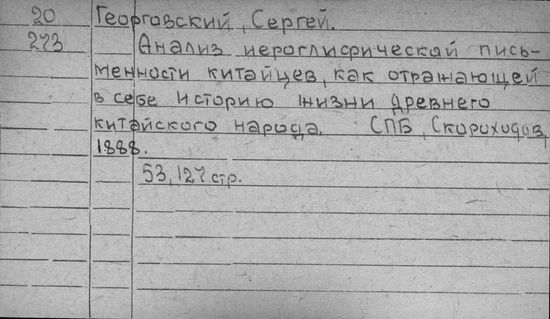 20 Георговский, Сергей.
273 Анализ иероглифической пись-
менности китайцев, как отражающей
в себе историю жизни древнего
китайского народа. СПБ, Скороходов,
1888.
53, 127 стр.